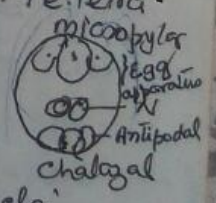 micropylar
Egg
apparatus
Antipodal
Chalazal